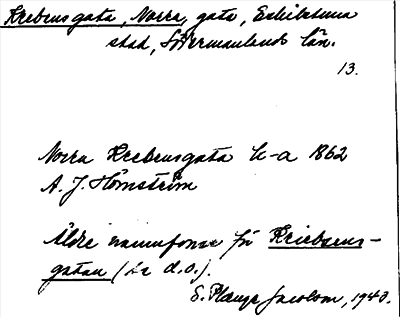 Krebensgata, Norra, gata, Eskilstuna
stad, Södermanlands län.
13.
Norra Krebensgata k-a 1862
A. J. Hörnström
Äldre namnform för Kriebsens-
gatan (se d.o.).
S. Plange Jacobson, 1940.